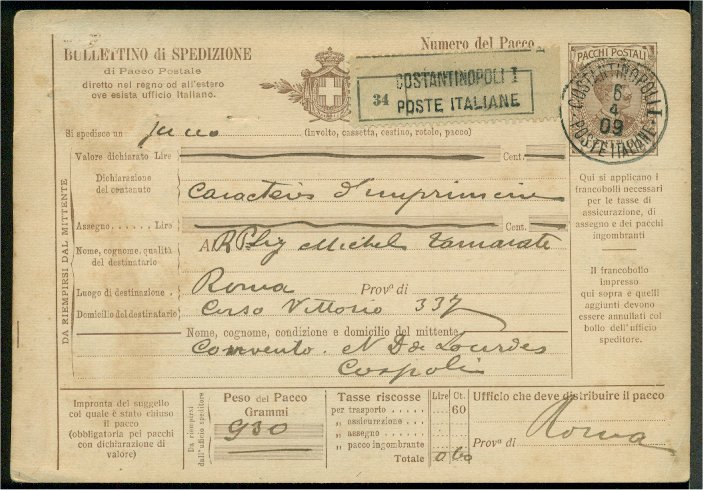 BULLETTINO di SPEDIZIONE
di Pacco Postale
diretto nel regno od all'estero
ove esista ufficio Italiano.
Numero del Pacco
34
COSTANTINOPOLI I
POSTE ITALIANE
PACCHI POSTALI
COSTANTINOPOLI I
6
4
09
POSTE ITALIANE
Si spedisce un (involto, cassetta, cestino, rotolo, pacco)
Valore dichiarato Lire Cent.
Dichiarazione
del contenuto
Caractères d'imprimerie
Assegno Lire Cent.
Nome, cognome, qualità
del destinatario
A R P Lig Michel Tamarati
Luogo di destinazione Roma Prov.ª di
Domicilio del destinatario Corso Vittorio 337
Nome, cognome, condizione e domicilio del mittente
Convento N D de Lourdes
Cospoli
DA RIEMPIRSI DAL MITTENTE
Qui si applicano i
francobolli necessari
per le tasse di
assicurazione, di
assegno e dei pacchi
ingombranti
Il francobollo
impresso
qui sopra e quelli
aggiunti devono
essere annullati col
bollo dell'ufficio
speditore.
Impronta del suggello
col quale è stato chiuso
il pacco
(obbligatoria pei pacchi
con dichiarazione di
valore)
Da riempirsi
dall'ufficio speditore
Peso del Pacco
Grammi
930
Tasse riscosse Lire Ct.
per trasporto 60
„ assicurazione
„ assegno
„ pacco ingombrante
Totale 0 60
Ufficio che deve distribuire il pacco
Roma
Prov.ª di